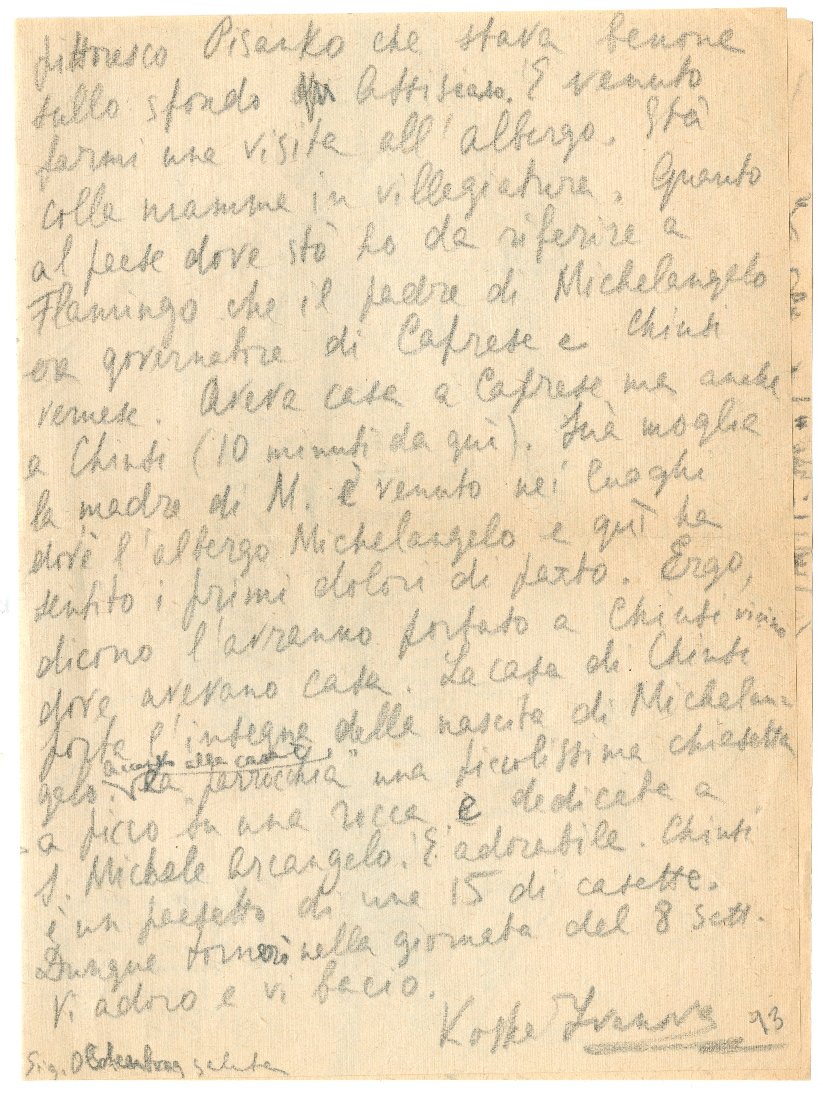 pittoresco Pisanko che stava benone
sullo sfondo Assisiano. È venuto
farmi una visita all'albergo. Stà
colla mamma in villegiatura. Quanto
al paese dove stò ho da riferire a
Flamingo che il padre di Michelangelo
era governatore di Caprese e Chiusi
vernese. Aveva casa a Caprese ma anche
a Chiusi (10 minuti da quì). Suà moglie
la madre di M. è venuto nei luoghi
dov'è l'albergo Michelangelo e quì ha
sentito i primi dolori di parto. Ergo,
dicono l'avranno portato a Chiusi vicino
dove avevano casa. La casa di Chiusi
porta l'insegna della nascita di Michelan-
gelo. accanto alla casa è La "parrocchia" una piccolissima chiesetta
a picco su una rocca è dedicata a
S. Michele Arcangelo. È adorabile. Chiusi
è un paesetto di una 15 di casette.
Dunque tornerò nella giornata del 8 Sett.
Vi adoro e vi bacio.
Ivanova 93
Sig. saluta